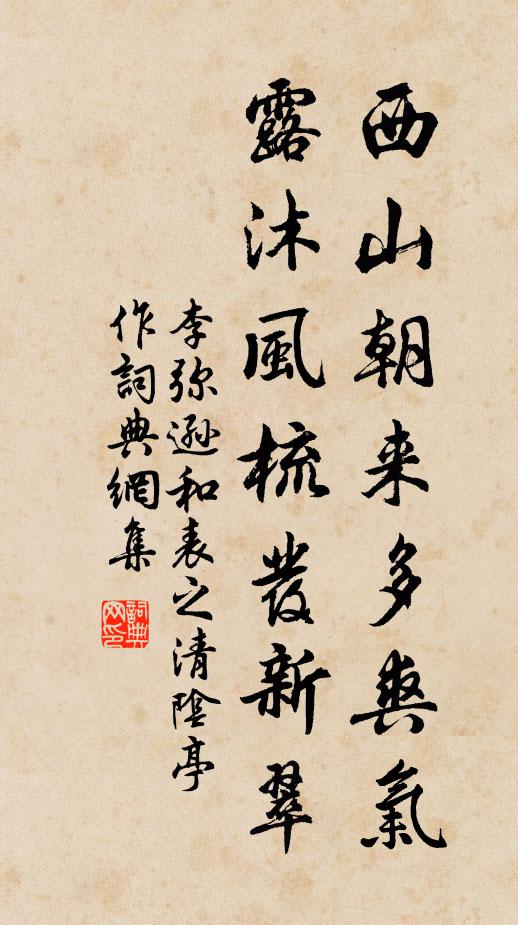 西山朝来多爽氣
露沐風梳發新翠
李弥遜和表之清陰亭
作詞典網集
詞典网印